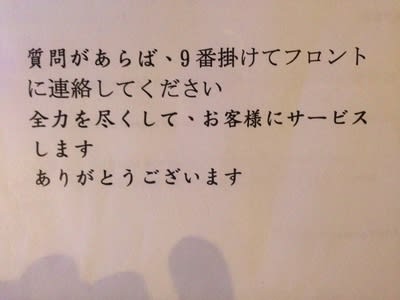 質問があらば、9番掛けてフロント
に連絡してください
全力を尽くして、お客様にサービス
します
ありがとうございます